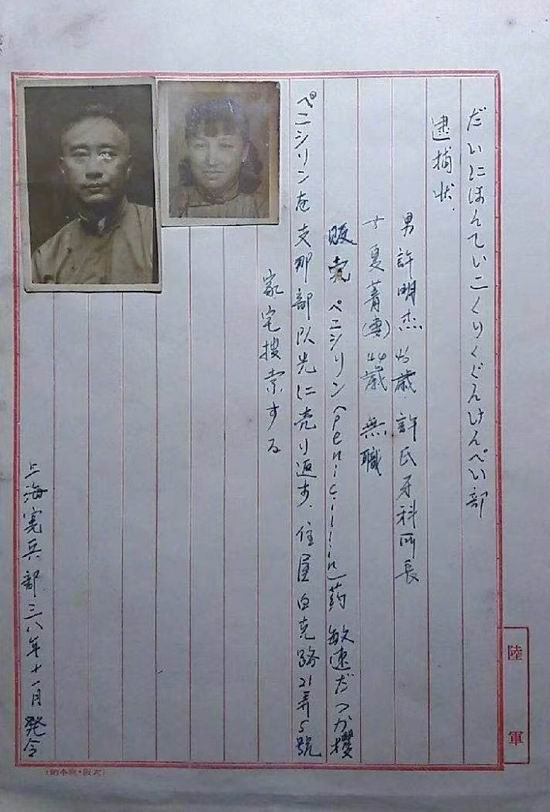 だいにほんていこくりくぐんけんぺい部
逮捕状.
男 許明杰 46歳 許氏牙科所長
女 夏菁(妻)44歳 無職
販売 ペニシリン(penicillin)药 敏速だつか櫻
ペニシリンを支那部队先に売り返す. 住屋白克路21弄5號
家宅搜索する
上海憲兵部. 三八年十一月発令
陸軍